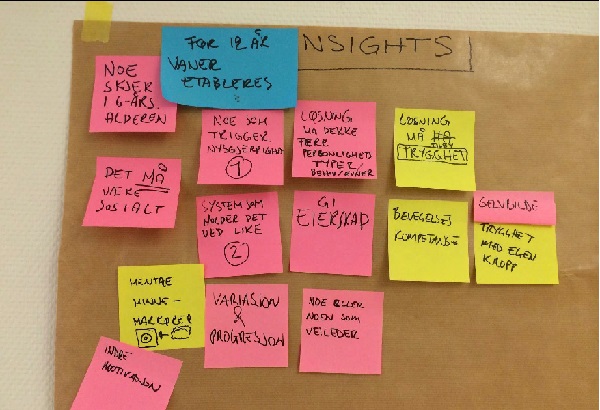 NSIGHTS
FØR 12 ÅR
VANER
ETABLERES
NOE
SKJER
I 6-ÅRS.
ALDEREN
NOE SOM
TRIGGER
NYSGJERRIGHET
1
LØSNING
MÅ DEKKE
FLERE
PERSONLIGHETS
TYPER/
LØSNING
MÅ
TRYGGHET
DET MÅ
VÆRE
SOSIALT
SYSTEM SOM
HOLDER DET
VED LIKE
2
GI
EIERSKAP
BEVEGELSES
KOMPETANSE
SELVBILDE
TRYGGHET
MED EGEN
KROPP
HENTE
MINNE-
MARKØRER
VARIASJON
&
PROGRESJON
NOE ELLER
NOEN SOM
VEILEDER
INDRE
MOTIVASJON